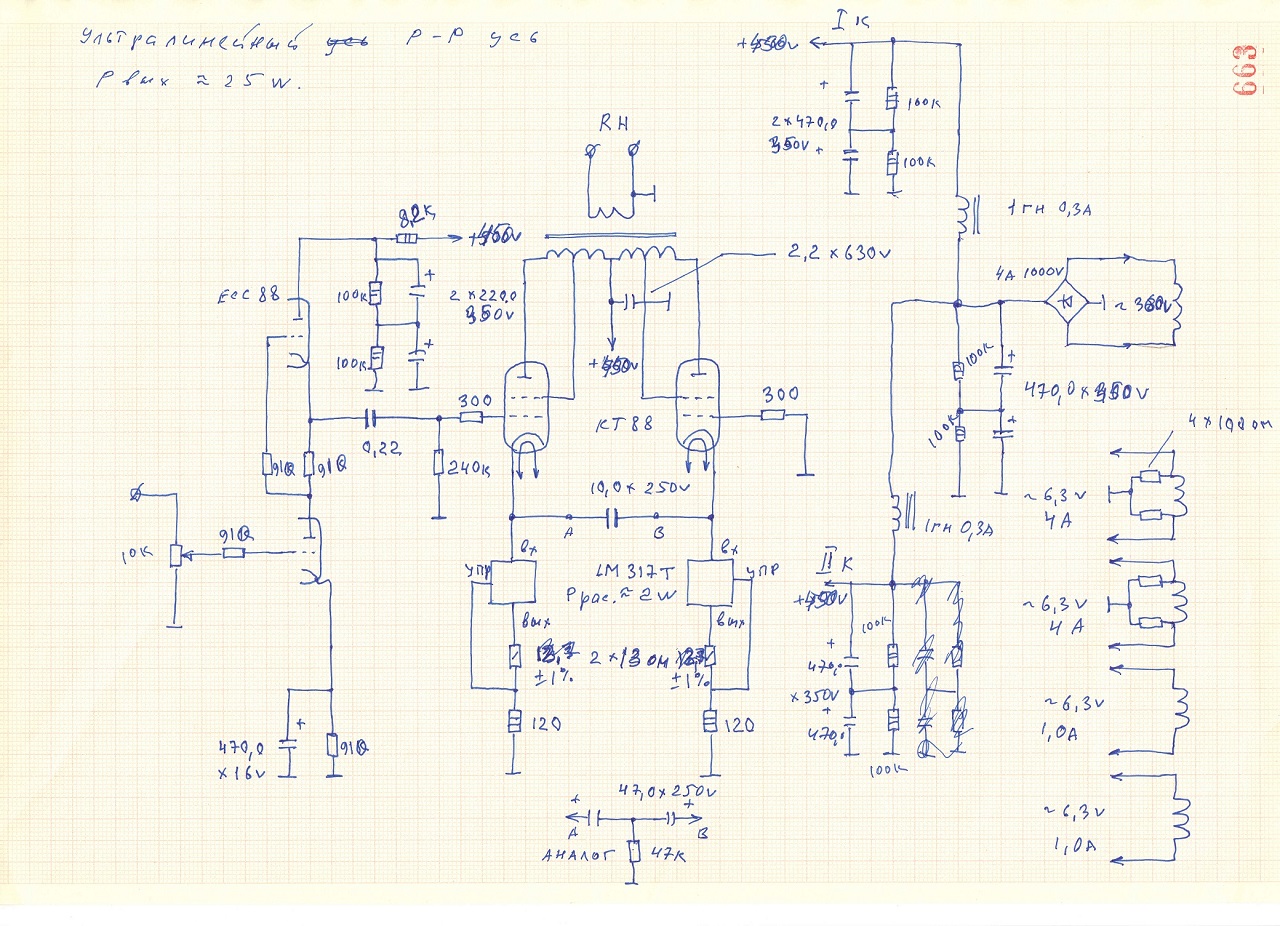 Ультралинейный P-P усь
Pвых ≈ 25W.
I K
663
+
100K
2×470,0
350V +
100K
RH
1гн 0,3A
82K
2,2×630V
4A 1000V
ECC 88
100K
+
2×220,0
350V
100K
+
100K
+
470,0×350V
100K
+
300
KT 88
300
0,22
240K
91Ω
91Ω
4×100 ом
~6,3V
4A
10,0×250V
A
B
1гн 0,3A
10K
91Ω
вх
вх
УПР
LM 317T
УПР
Pрас. ≈ 2W
вых
вых
II K
~6,3V
4A
100K
+
470,0
×350V
+
470,0
100K
2×13 ом
±1%
±1%
120
120
~6,3V
1,0A
470,0
×16V
+
91Ω
47,0×250V
+
+
A
B
АНАЛОГ
47K
~6,3V
1,0A